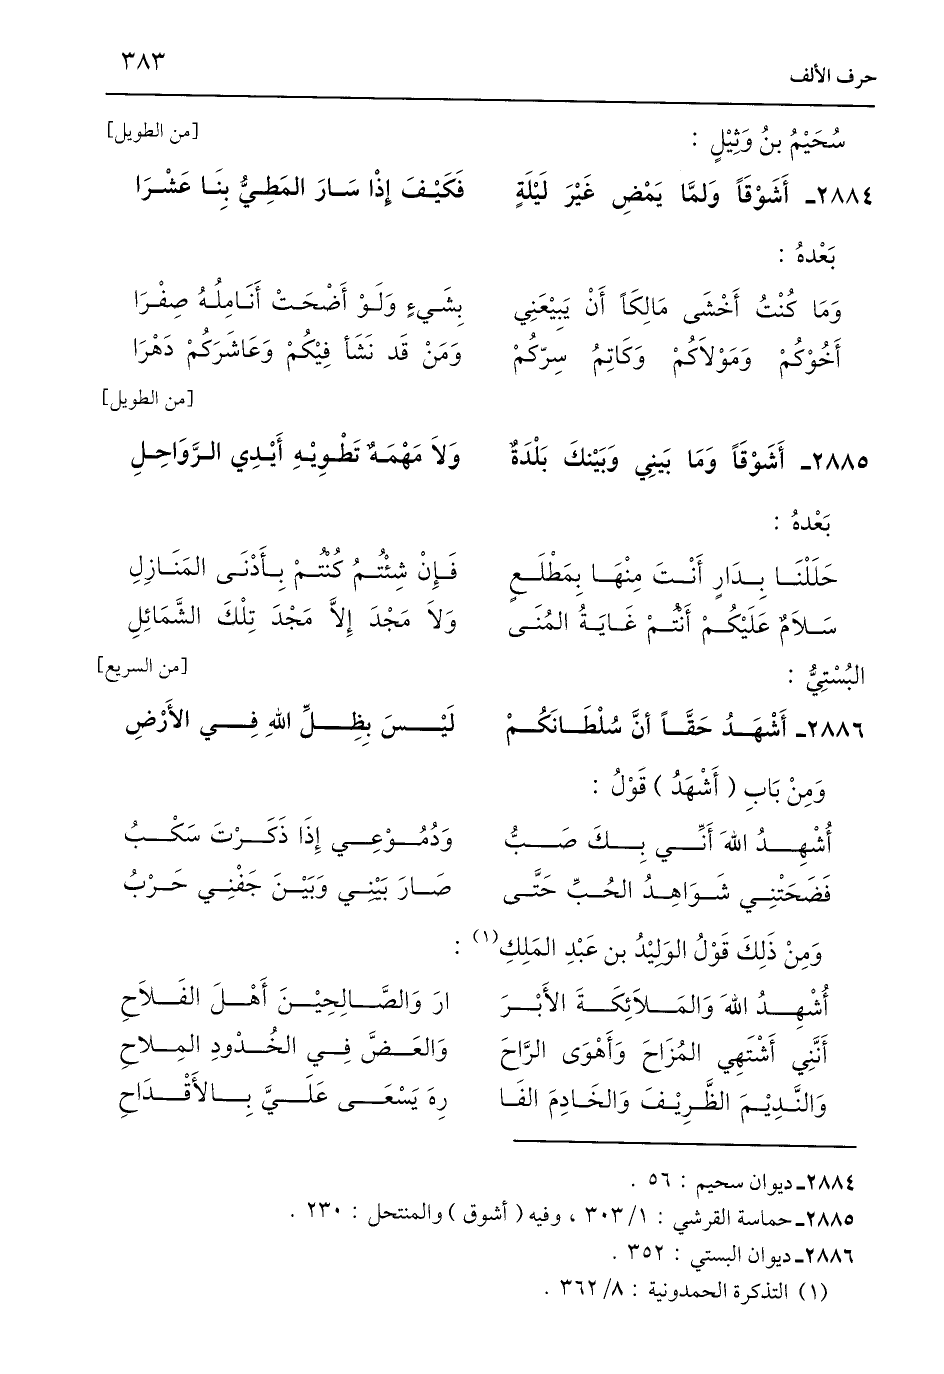 حرف الألف ٣٨٣
سُحَيْمُ بنُ وَثِيْلٍ : [من الطويل]
٢٨٨٤ـ أَشَوْقَاً وَلمَّا يَمْضِ غَيْرَ لَيْلَةٍ فَكَيْفَ إِذْا سَارَ المَطِيُّ بِنَا عَشْرَا
بَعْدهُ :
وَمَا كُنْتُ أَخْشَى مَالِكَاً أَنْ يَبِيْعَنِي بِشَيءٍ وَلَوْ أَضْحَتْ أَنَامِلُهُ صِفْرَا
أَخُوْكُمْ وَمَوْلاَكُمْ وَكَاتِمُ سِرّكُمْ وَمَنْ قَد نَشَأ فِيْكُمْ وَعَاشَرَكُمْ دَهْرَا
[من الطويل]
٢٨٨٥ـ أَشَوْقَاً وَمَا بَينِي وَبَيْنكَ بَلْدَةٌ وَلاَ مَهْمَهٌ تَطْوِيْهِ أَيْدِي الرَّوَاحِلِ
بَعْدهُ :
حَلَلْنَا بِدَارٍ أَنْتَ مِنْهَا بِمَطْلَعٍ فَإِنْ شِئْتُمُ كُنْتُمْ بِأَدْنَى المَنَازِلِ
سَلاَمٌ عَلَيْكُمْ أَنْتُمْ غَايَةُ المُنَى وَلاَ مَجْدَ إِلاَّ مَجْدَ تِلْكَ الشَّمَائِلِ
البُسْتِيُّ : [من السريع]
٢٨٨٦ـ أَشْهَدُ حَقَّاً أنَّ سُلْطَانَكُمْ لَيْسَ بِظِلِّ اللهِ فِي الأَرْضِ
وَمِنْ بَابِ ( أَشْهَدُ ) قَوْلُ :
أُشْهِدُ اللهَ أَنَّنِي بِكَ صَبُّ وَدُمُوْعِي إِذَا ذَكَرْتَ سَكْبُ
فَضَحَتْنِي شَوَاهِدُ الحُبِّ حَتَّى صَارَ بَيْنِي وَبَيْنَ جَفْنِي حَرْبُ
وَمِنْ ذَلِكَ قَوْلُ الوَلِيْدُ بن عَبْدِ المَلِكِ(١) :
أُشْهِدُ اللهَ وَالمَلاَئِكَةَ الأَبْرَ ارَ وَالصَّالِحِيْنَ أَهْلَ الفَلاَحِ
أَنَّنِي أَشْتَهِي المُزَاحَ وَأَهْوَى الرَّاحَ وَالعَضَّ فِي الخُدُودِ المِلاَحِ
وَالنَّدِيْمَ الظَّرِيْفَ وَالخَادِمَ الفَا رِهَ يَسْعَى عَلَيَّ بِالأَقْدَاحِ
٢٨٨٤ـ ديوان سحيم : ٥٦ .
٢٨٨٥ـ حماسة القرشي : ١/ ٣٠٣ ، وفيه ( أشوق ) والمنتحل : ٢٣٠ .
٢٨٨٦ـ ديوان البستي : ٣٥٢ .
(١) التذكرة الحمدونية : ٨/ ٣٦٢ .